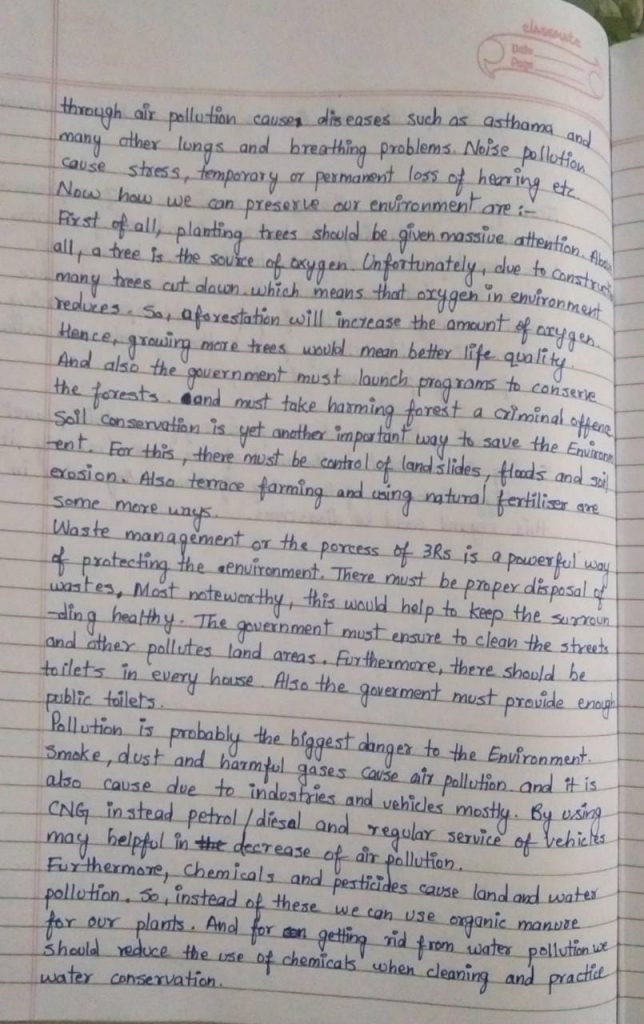 classmate
Date
Page
through air pollution causes diseases such as asthama and
many other lungs and breathing problems. Noise pollution
cause stress, temporary or permanent loss of hearing etc.
Now how we can preserve our environment are :-
First of all, planting trees should be given massive attention. Above
all, a tree is the source of oxygen. Unfortunately, due to construct
many trees cut down. which means that oxygen in environment
reduces. So, aforestation will increase the amount of oxygen.
Hence, growing more trees would mean better life quality.
And also the government must launch programs to conserve
the forests. and must take harming forest a criminal offence
Soil conservation is yet another important way to save the Environm
-ent. For this, there must be control of landslides, floods and soil
erosion. Also terrace farming and using natural fertiliser are
some more ways.
Waste management or the porcess of 3Rs is a powerful way
of protecting the environment. There must be proper disposal of
wastes, Most noteworthy, this would help to keep the surroun
-ding healthy. The government must ensure to clean the streets
and other pollutes land areas. Furthermore, there should be
toilets in every house. Also the goverment must provide enough
public toilets.
Pollution is probably the biggest danger to the Environment.
Smoke, dust and harmful gases cause air pollution. and it is
also cause due to industries and vehicles mostly. By using
CNG instead petrol/diesel and regular service of vehicles
may helpful in the decrease of air pollution.
Furthermore, chemicals and pesticides cause land and water
pollution. So, instead of these we can use organic manure
for our plants. And for getting rid from water pollution we
should reduce the use of chemicals when cleaning and practice
water conservation.